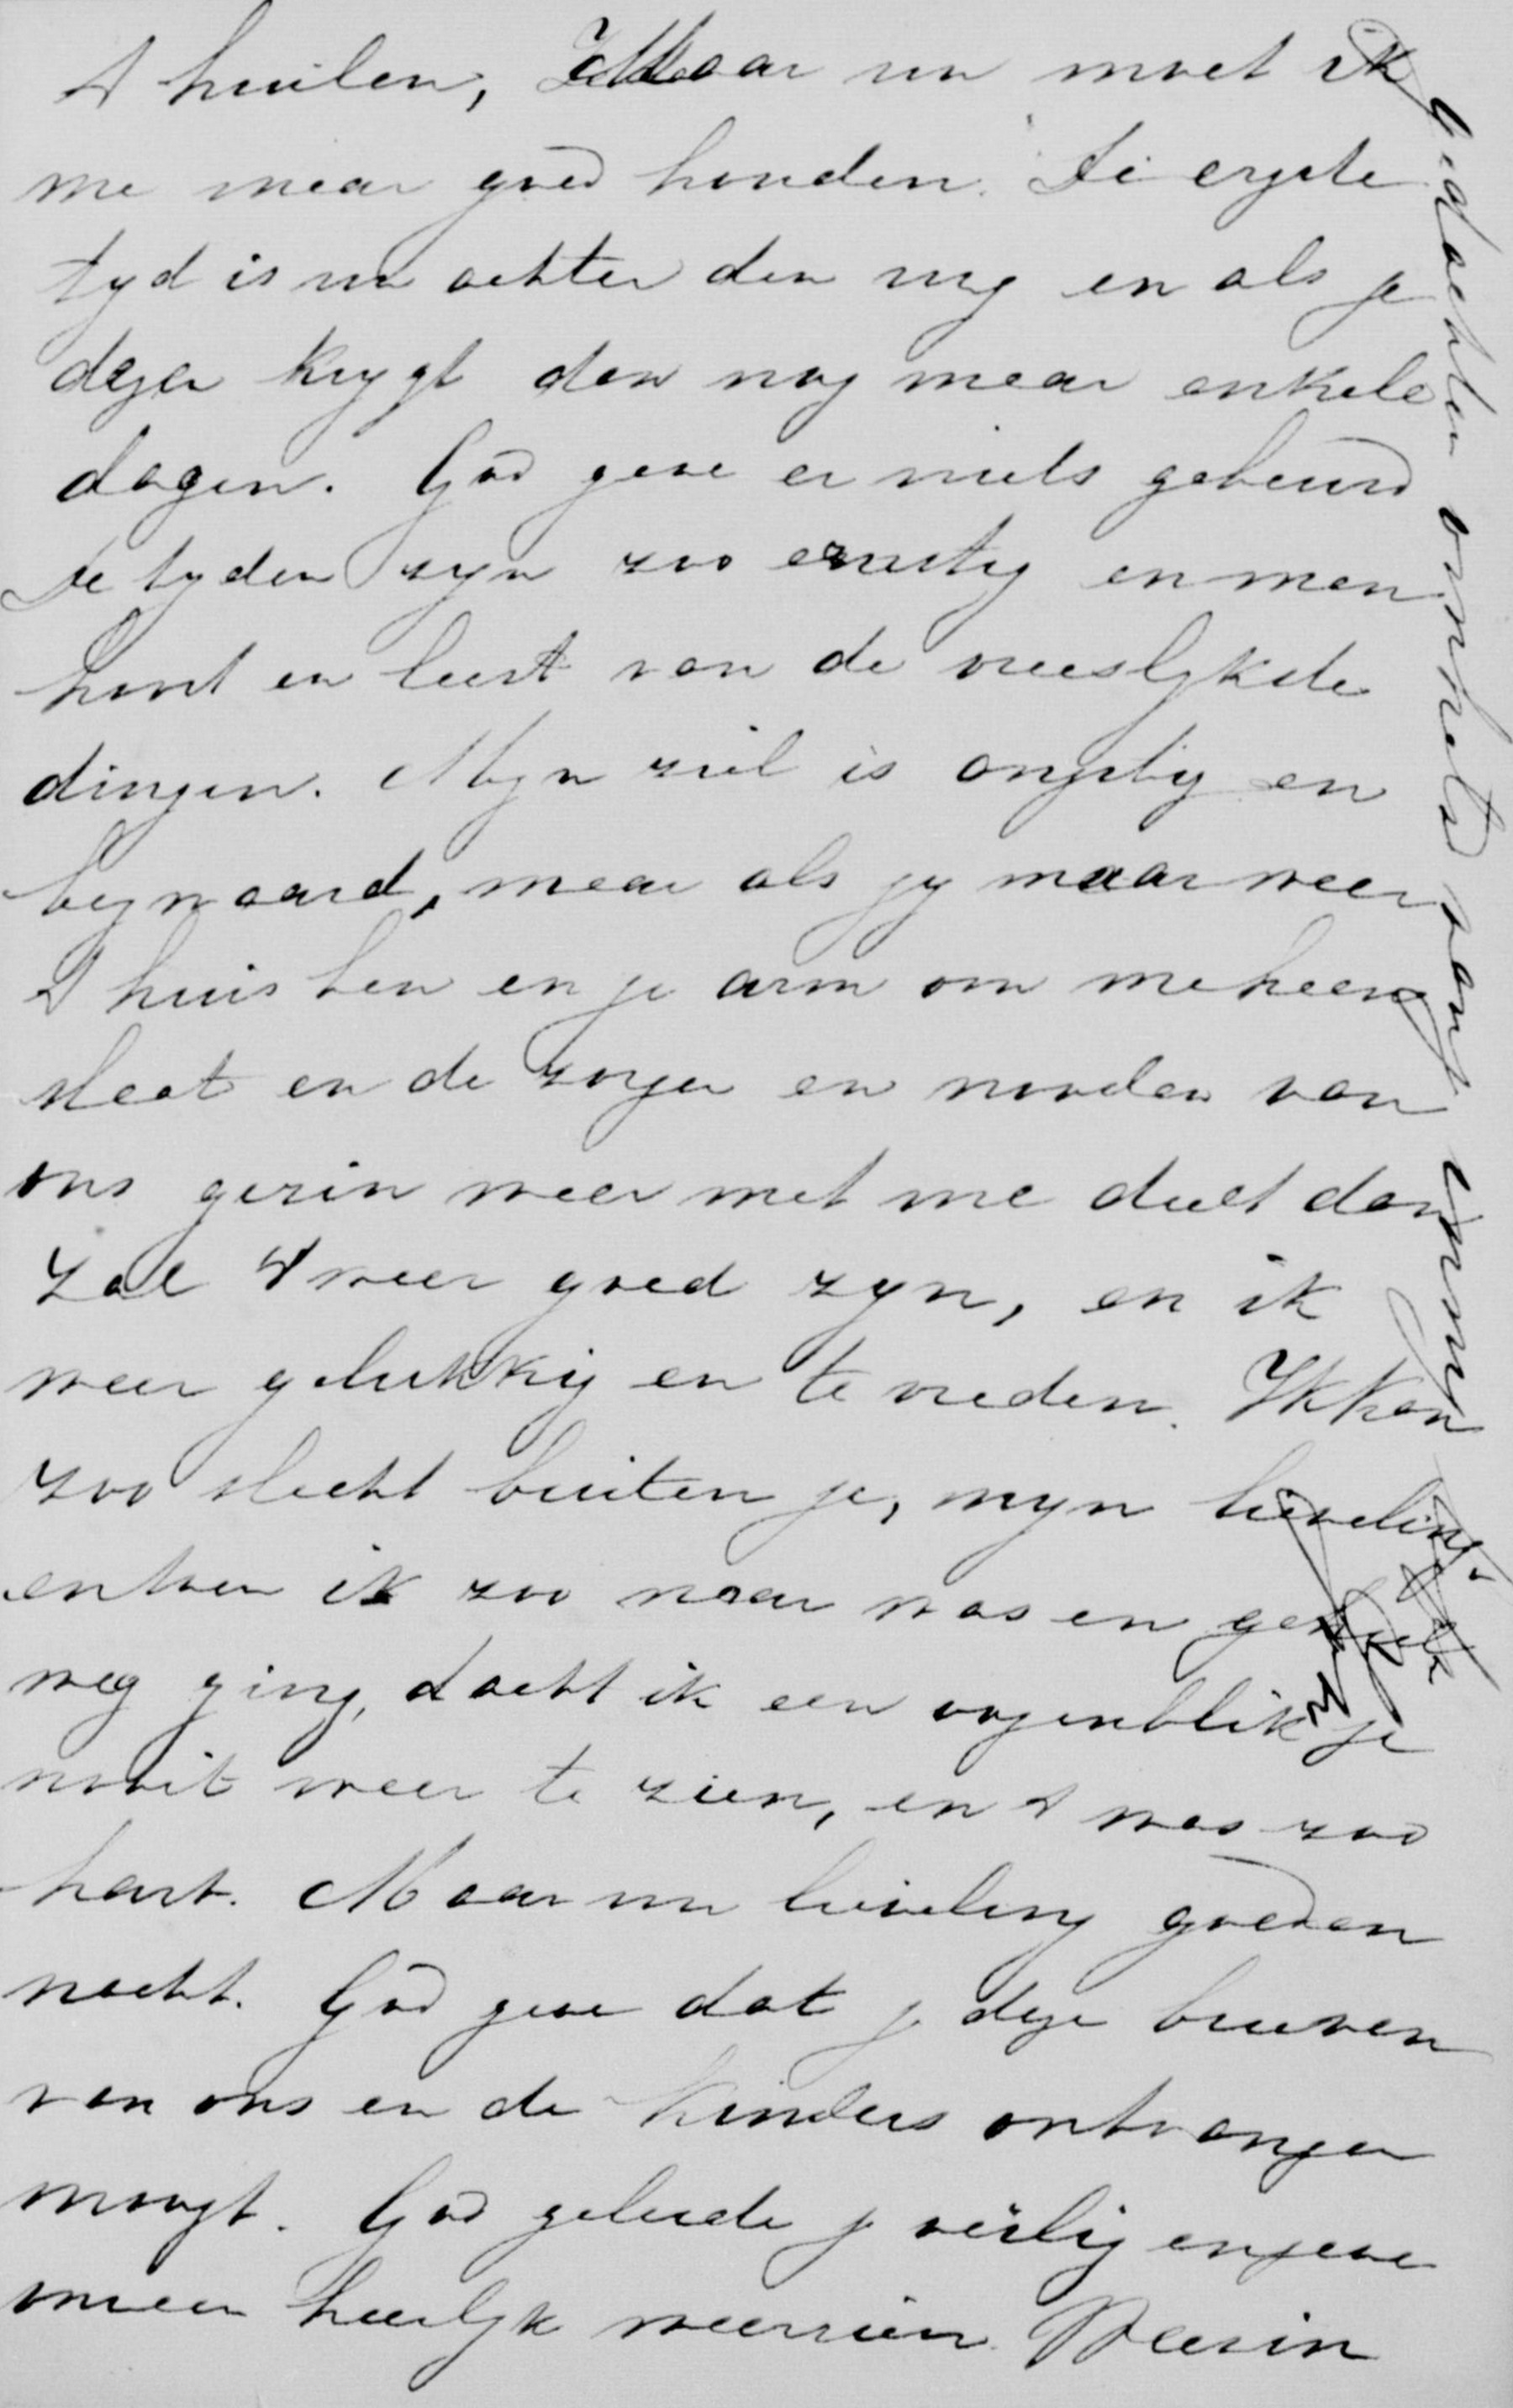 't huilen, Maar nu moet ik
me maar goed houden. De ergste
tyd is nu achter den rug en als je
deze krygt dan nog maar enkele
dagen. God geve er niets gebeurd
De tyden zyn zoo ernstig en men
hoort en leest van de vreeslykste
dingen. Myn ziel is angstig en
bezwaard, maar als jy maar weer
't huis ben en je arm om me heen
slaat en de zorgen en noden van
ons gezin weer met me deelt dan
zal 't weer goed zyn, en ik
weer gelukkig en te vreden. Ik kan
zoo slecht buiten je, myn lieveling
en toen ik zoo naar was en
weg ging, dacht ik een oogenblik je
nooit weer te zien, en 't was zoo
hard. Maar nu lieveling goeden
nacht. God geve dat je deze brieven
van ons en de kinders ontvangen
moogt. God geleide je veilig en geve
weer heerlyk weerzien. Weer in
gedachten omhelsd van